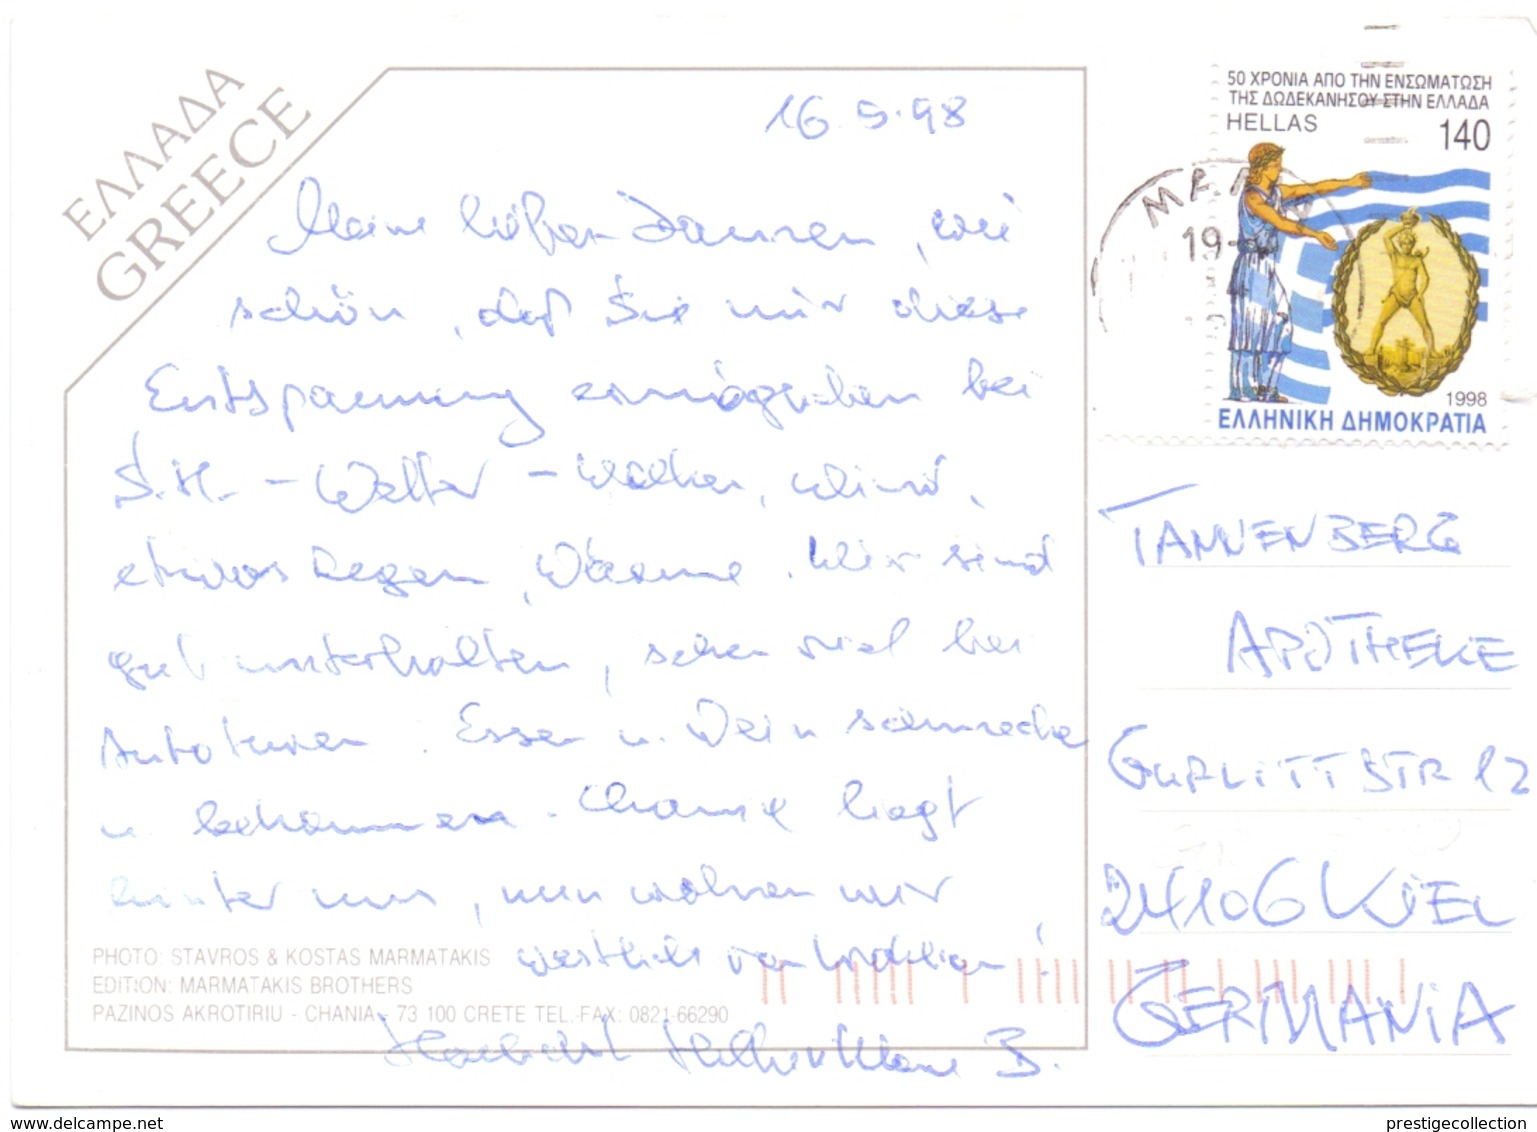 ΕΛΛΑΔΑ
GREECE
16.5.98
Meine lieben Damen, wie
schön, daß Sie mir diese
Entspannung ermöglichen bei
S.H. - Wetter - Wolken, Wind,
etwas Regen, Wärme. Wir sind
gut unterhalten, sehen viel bei
Autoturen. Essen u. Wein schmecken
u. bekommen. Chania liegt
hinter uns, nun wohnen wir
westlich von
PHOTO: STAVROS & KOSTAS MARMATAKIS
EDITION: MARMATAKIS BROTHERS
PAZINOS AKROTIRIU - CHANIA - 73 100 CRETE TEL.-FAX: 0821-66290
50 ΧΡΟΝΙΑ ΑΠΟ ΤΗΝ ΕΝΣΩΜΑΤΩΣΗ
ΤΗΣ ΔΩΔΕΚΑΝΗΣΟΥ ΣΤΗΝ ΕΛΛΑΔΑ
HELLAS 140
1998
ΕΛΛΗΝΙΚΗ ΔΗΜΟΚΡΑΤΙΑ
19
TANNENBERG
APOTHEKE
GURLITTSTR 12
24106 KIEL
GERMANIA
www.delcampe.net
prestigecollection